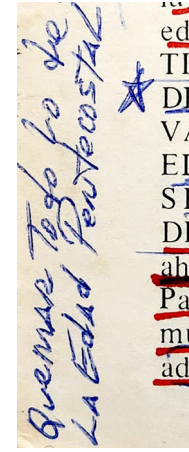 Quemar Todo lo de
La Edad Pentecostal
ed
TI
DI
VA
EL
SI
DI
ah
Pa
mu
ad